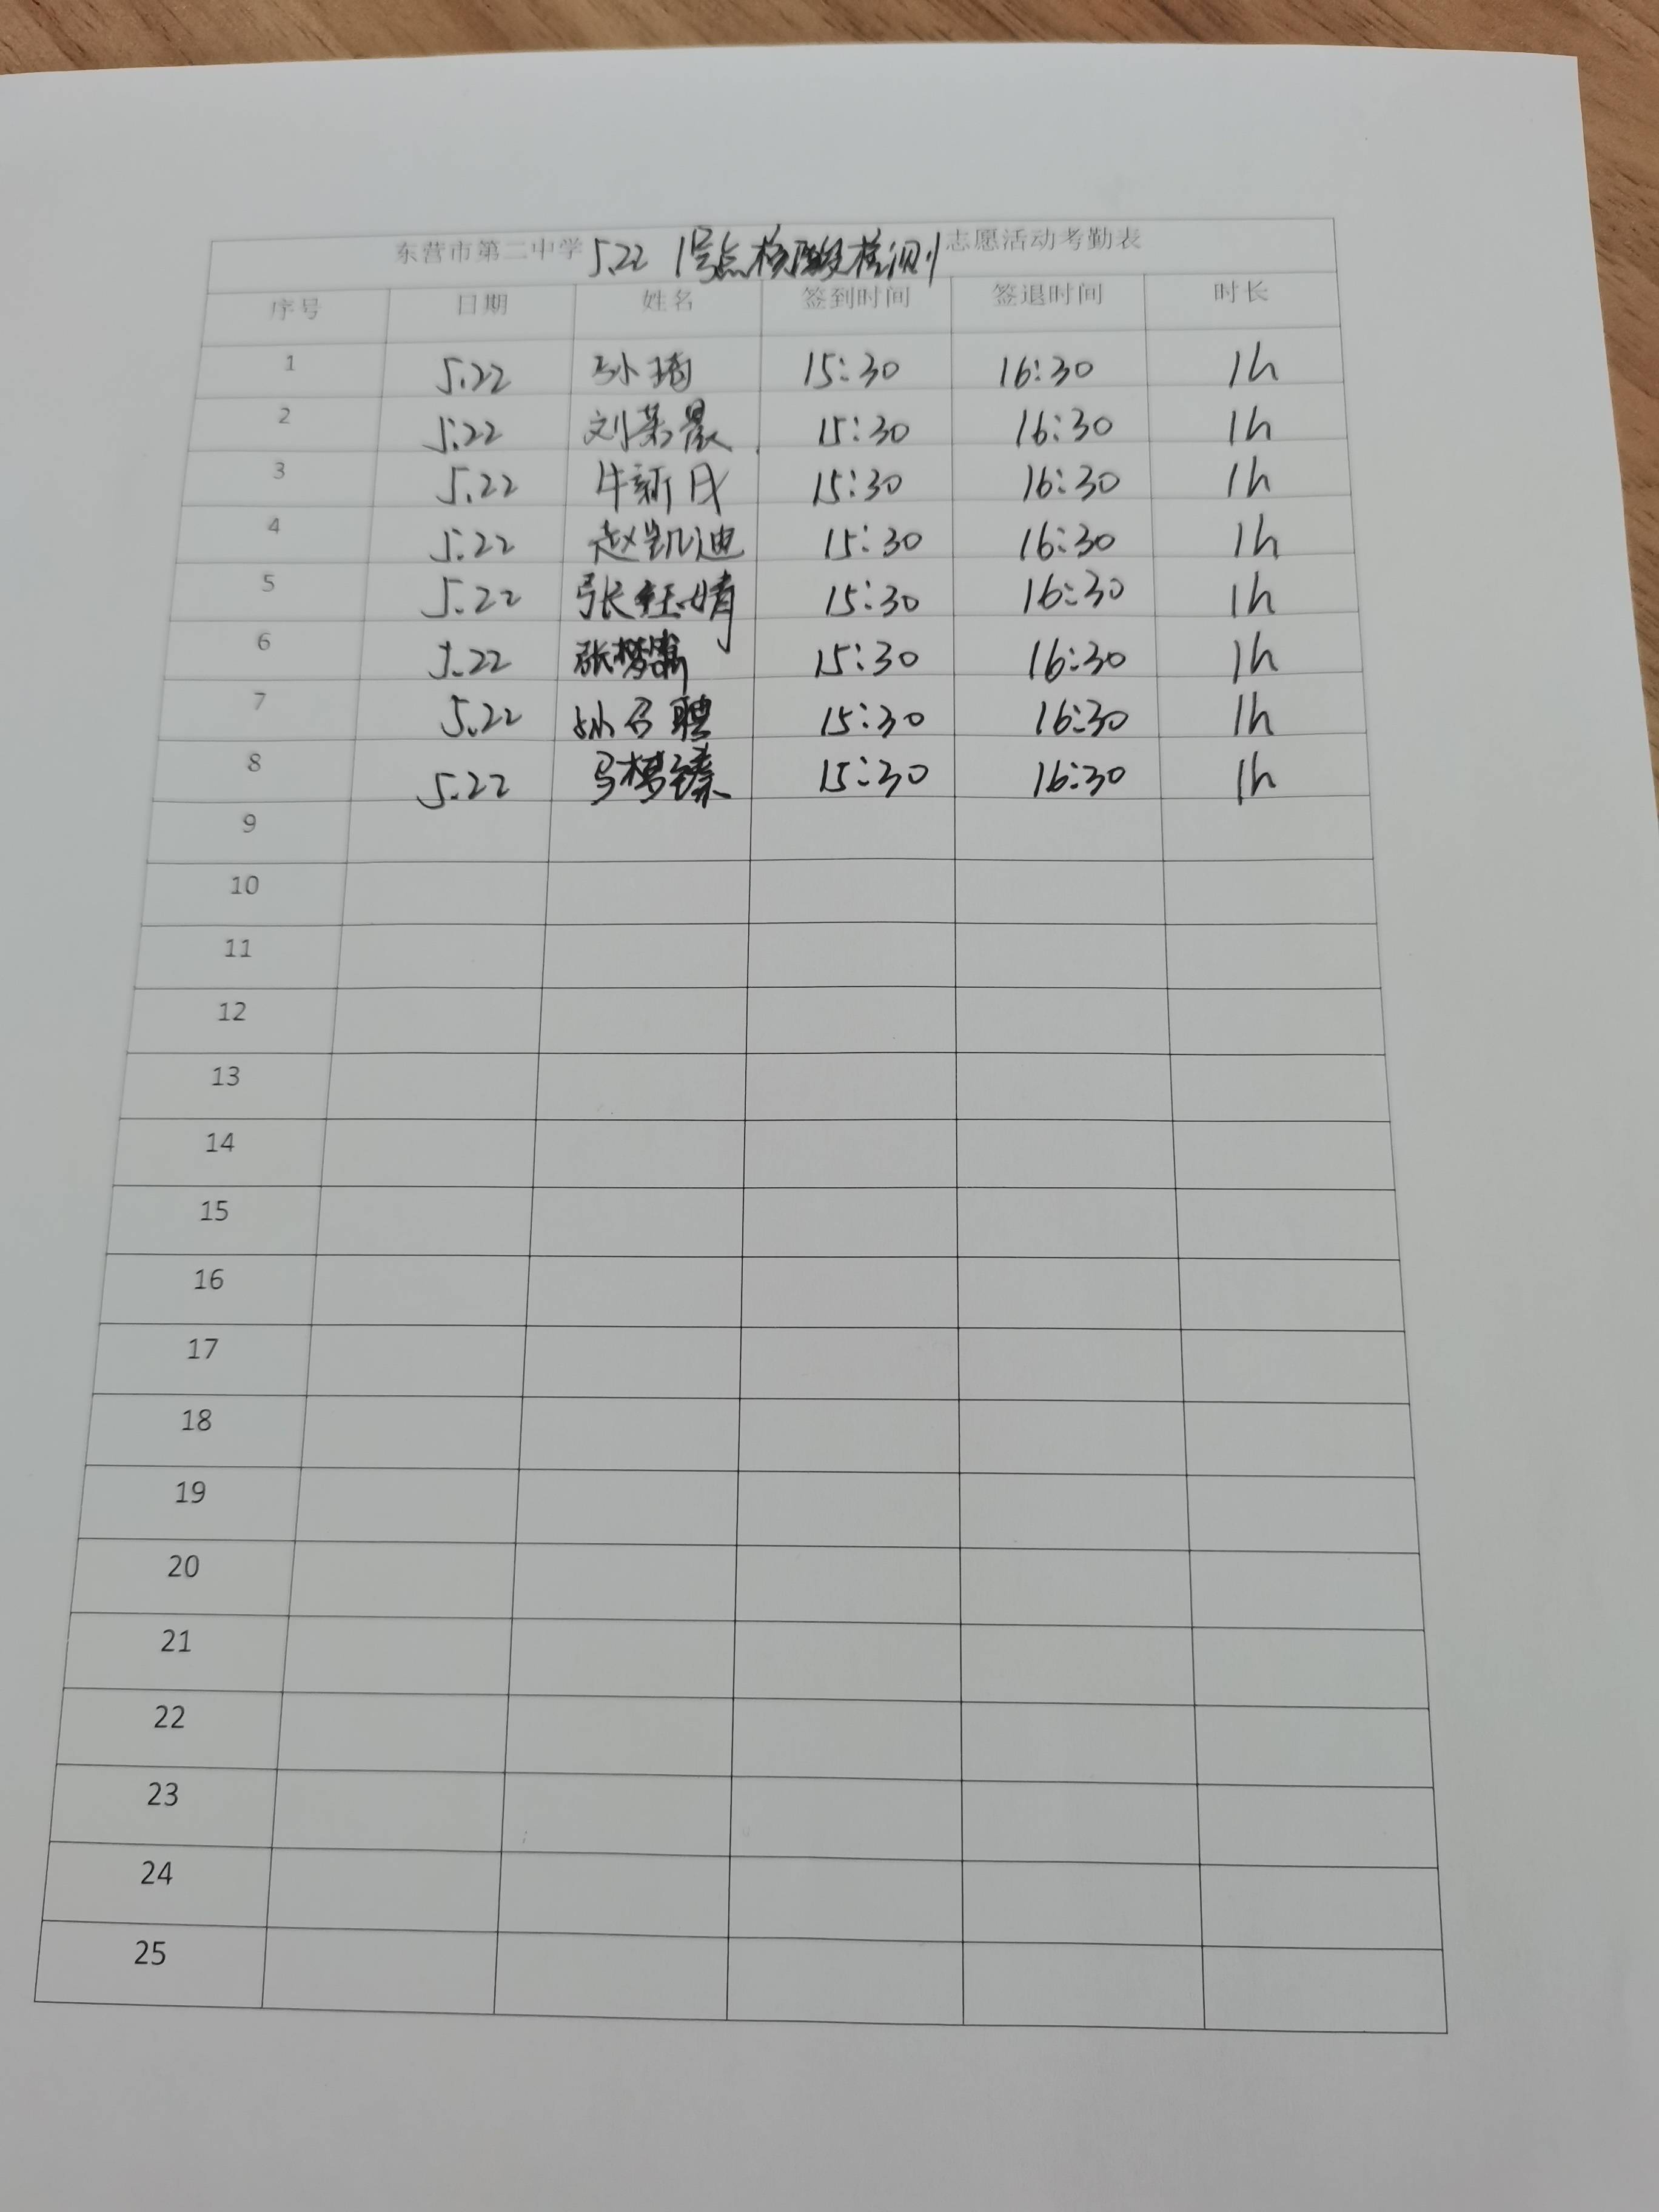 东营市第二中学 5.22 1号点核酸检测 志愿活动考勤表
序号 日期 姓名 签到时间 签退时间 时长
1 5.22 孙 15:30 16:30 1h
2 5.22 刘 晨 15:30 16:30 1h
3 5.22 牛新月 15:30 16:30 1h
4 5.22 赵凯迪 15:30 16:30 1h
5 5.22 张钰婧 15:30 16:30 1h
6 5.22 张梦 15:30 16:30 1h
7 5.22 孙召聘 15:30 16:30 1h
8 5.22 马梦臻 15:30 16:30 1h
9
10
11
12
13
14
15
16
17
18
19
20
21
22
23
24
25